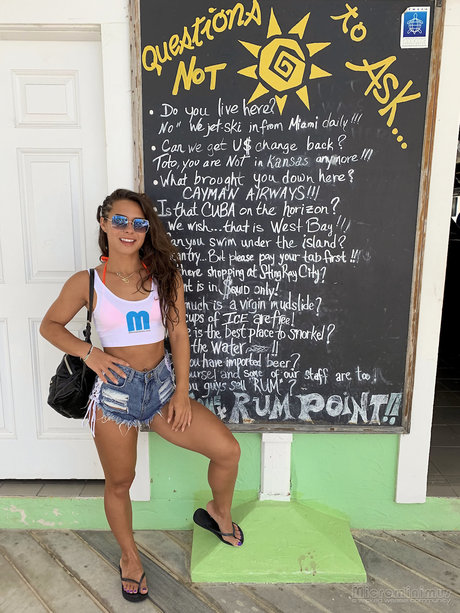 Questions to
Not ASK...
• Do you live here?
No" We jet-ski in from Miami daily!!!
• Can we get U$ change back?
Toto, you are NOT in Kansas anymore!!!
• What brought you down here?
CAYMAN AIRWAYS!!!
Is that CUBA on the horizon?
We wish... that is West Bay!!!
you swim under the island?
But please pay your tab first!!
here shopping at StingRay CITY?
in only!
much is a virgin mudslide?
cups of ICE are free!
is the best place to snorkel?
the Water
you have imported beer?
and Some of our staff are too!
guys sell "RUM"?
RUM POINT!!
m
Microminimus